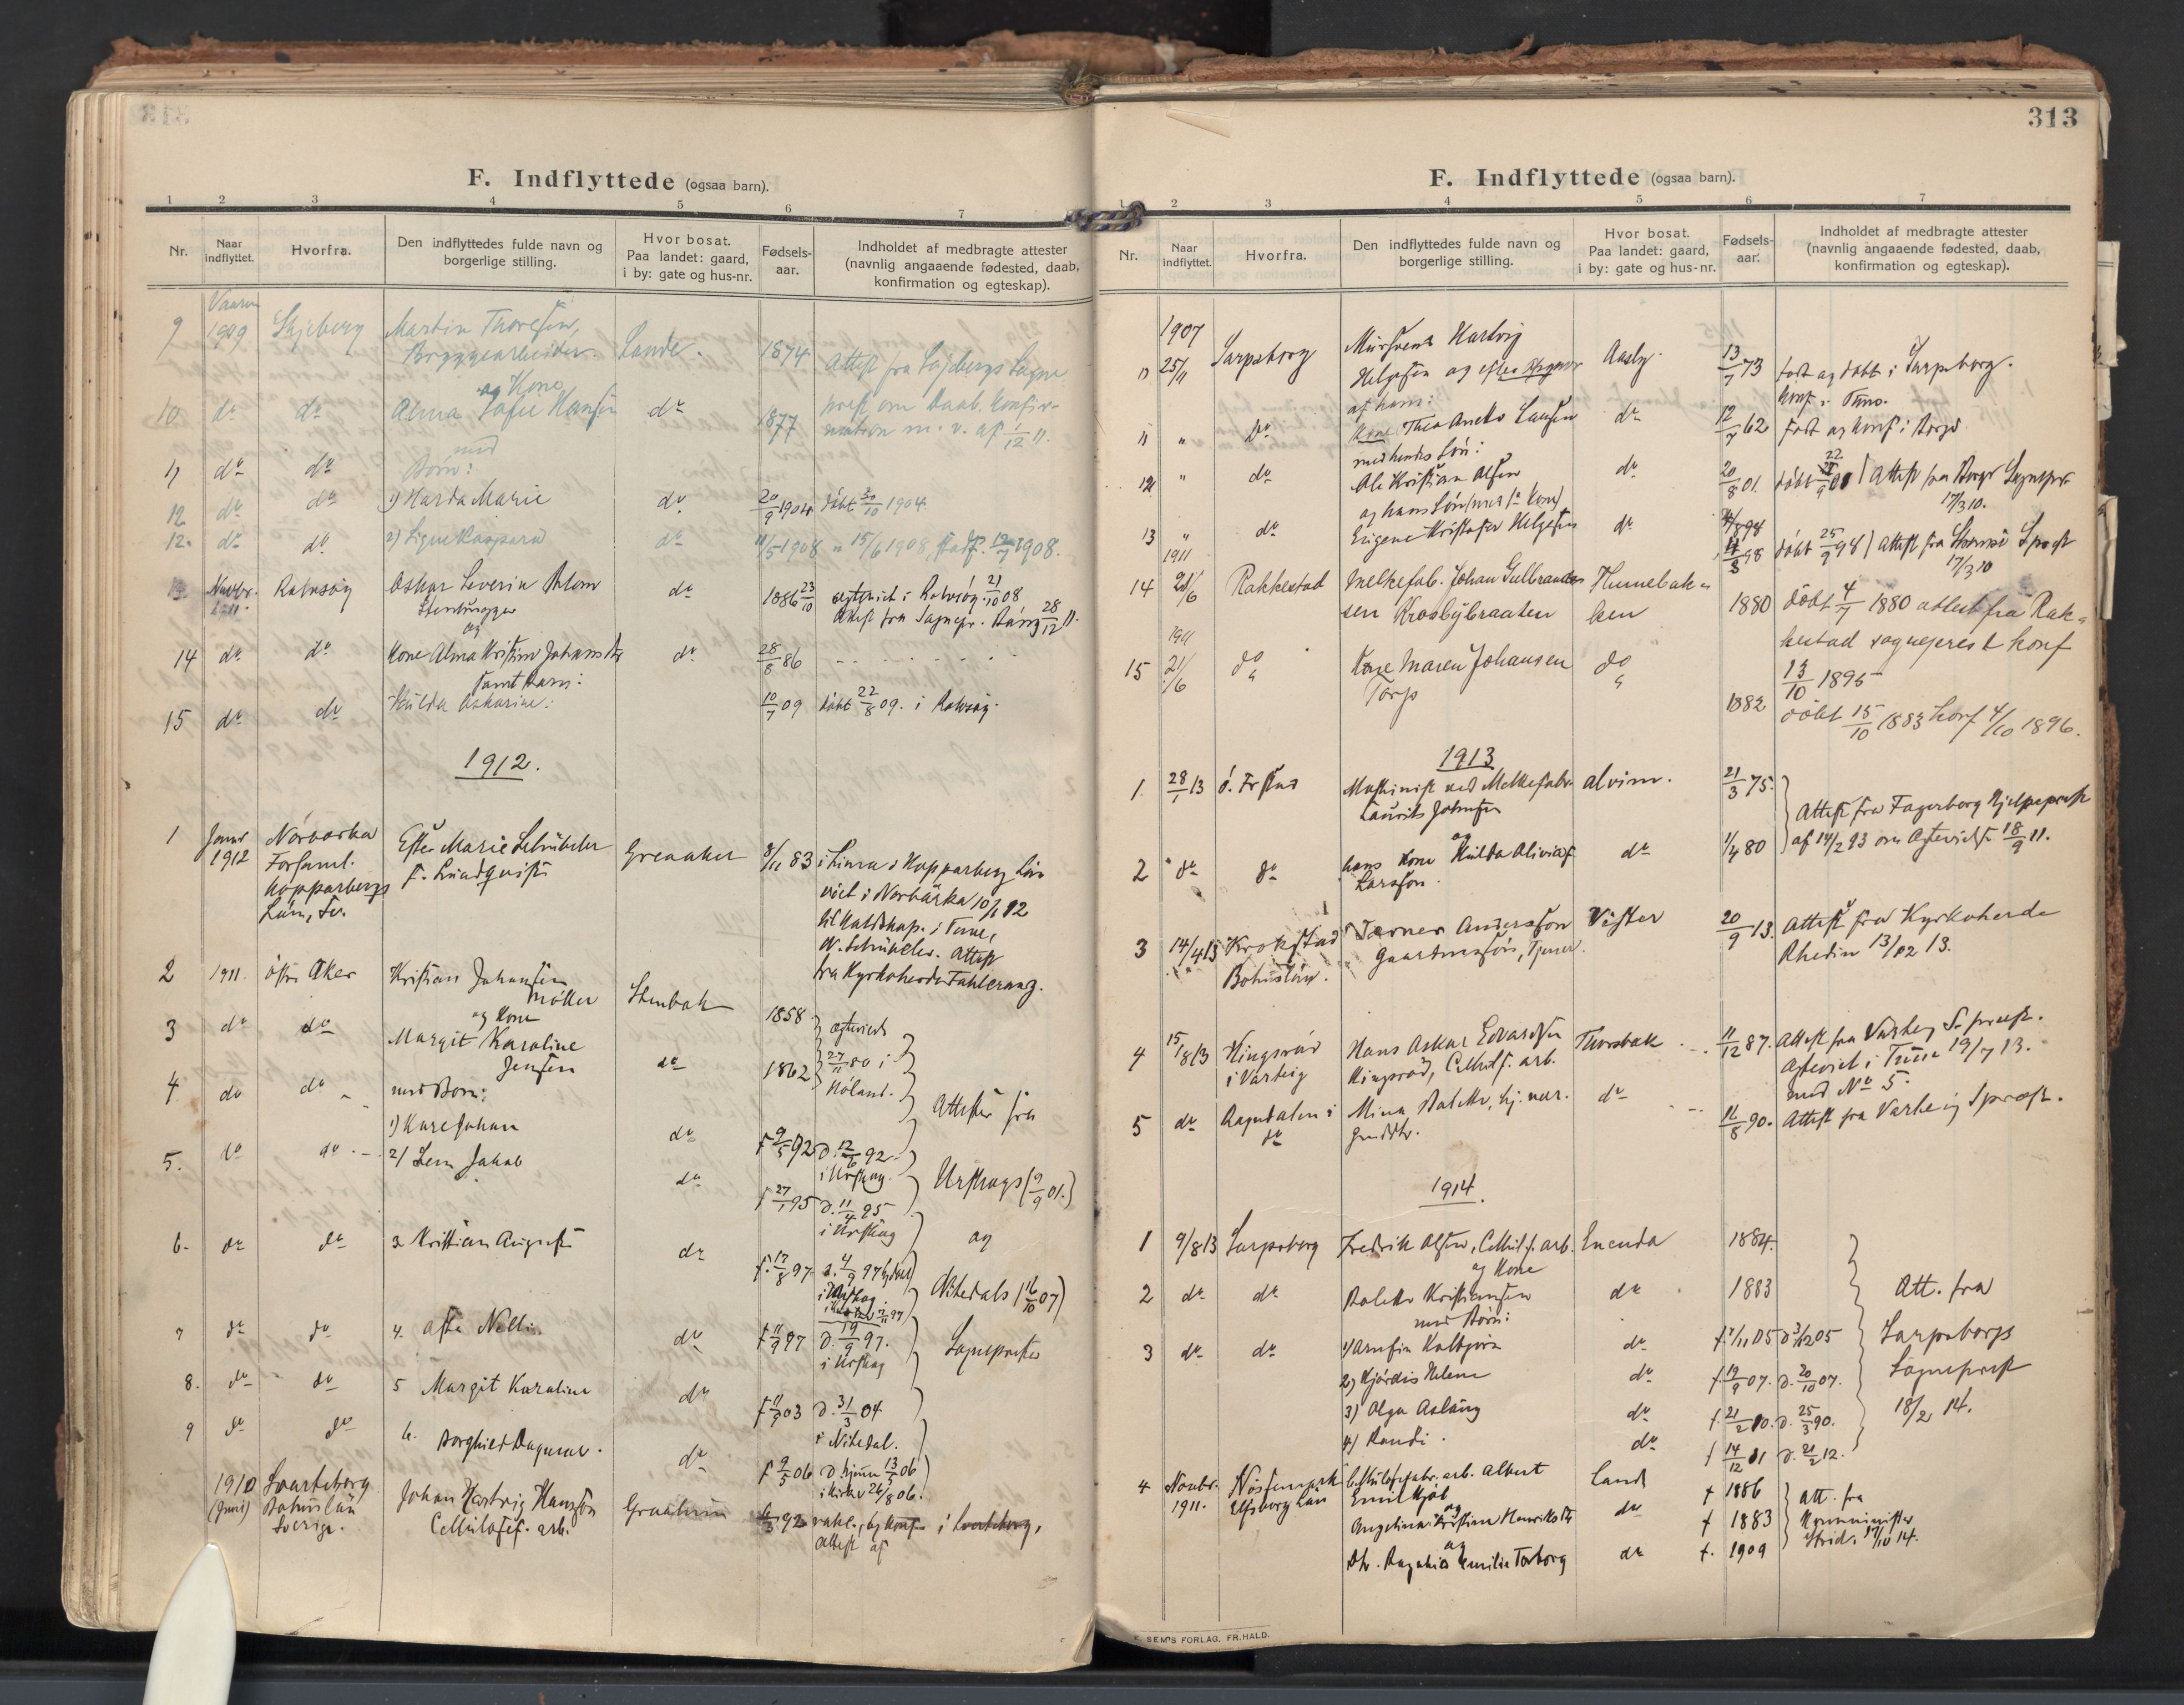 313
F. Indflyttede (ogsaa barn).
1 2 3 4 5 6 7
Nr.
Naar indflyttet.
Hvorfra.
Den indflyttedes fulde navn og borgerlige stilling.
Hvor bosat. Paa landet: gaard, i by: gate og hus-nr.
Fødsels-aar.
Indholdet af medbragte attester (navnlig angaaende fødested, daab, konfirmation og egteskap).
9 Vaaren 1909 Skjeberg Martin Thoresen, Bryggearbeider. Lande. 1874 Attest fra Skjebergs Sogne
og Kone
10 do do Alma Sofie Hansen do 1877 prest om Daab, Konfirmation m. v. af 1/12 11.
med Børn:
11 do do 1) Harda Marie do 20/9 1904 døbt 30/10 1904.
12 do do 2) Signe Kaspara do 11/5 1908 " 15/6 1908, stadf. 12/7 1908.
Novbr. 1911 Rolvsøy Oskar Severin do 1886 23/10 egteviet i Rolvsøy 21/10 08
Stenhugger og Attest fra Sognepr. 28/12 11.
14 do do Kone Alma Kristine Johansdtr do 28/8 86
samt Barn:
15 do do Hulda Oskarine. 10/7 09 døbt 22/8 09. i Rolvsøy.
1912.
1 Januar 1912 Norbarka Forsaml. Kopparbergs Län, Sv. Ester Marie Schübeler f. Lundqvist Greaaker 8/11 83 i Lima i Kopparberg Län
viet i Norbärka 10/1 12
til Katdskap. i Tune,
N. Schübeler. Attest
fra Kyrkoherde Fahlerang.
2 1911. Østr. Aker Kristian Johansen Møller Stenbak 1858 egteviede
og Kone
3 do do Margit Karoline Jensen do 1862 27/11 80 i Høland.
med Børn:
4 do do 1) Kare Johan do f 9/5 92 d. 12/6 92 i Urskog. Attester fra
5. do do 2) Lern Jakob do f 27/1 95 d. 11/4 95 i Urskog Urskogs (9/9 01.)
6. do do 3 Kristian August do f. 17/8 97 d. 4/9 97 og
7 do do 4. Asta Nelli do f 11/9 97 d. 19/9 97. i Urskog Nitedals (16/10 07)
Sogneprester
8. do do 5 Margit Karoline do f 11/9 03 d. 31/3 04 i Nitedal.
9 do do 6. Borghild Dagmar. do f 9/5 06 d hjem 13/5 06 i kirke 26/8 06.
1910 (Juni) Svarteborg Bohuslän Sverige. Johan Hartvig Hansson Cellulosef. arb. Graatun 6/3 92 vakc., og konf. i Svarteborg,
Attest af
313
F. Indflyttede (ogsaa barn).
1. 2 3 4 5 6 7
Nr.
Naar indflyttet.
Hvorfra.
Den indflyttedes fulde navn og borgerlige stilling.
Hvor bosat. Paa landet: gaard, i by: gate og hus-nr.
Fødsels-aar.
Indholdet af medbragte attester (navnlig angaaende fødested, daab, konfirmation og egteskap).
1907
10 25/11 Sarpsborg Mursvend Hartvig Helgesen Aasly. 13/7 73 født og døbt i Sarpsborg.
konf. i Tune.
11 " do Kone Thea Aneta Larsen do 12/7 62 født og konf. i Borge
med hendes Søn:
12 " do Ole Kristian Olsen do 20/8 01. døbt 22/9 01 Attest fra Borge Sognepr. 17/3 10.
og hans Søn med 1ste Kone
13 " do Eugene Kristofer Helgesen do 4/8 98 døbt 25/9 98 Attest fra Spræst 17/3 10
1911
14 21/6 Rakkestad Melkefab. Johan Gulbrandsen Krosbybraaten Hunnebakken 1880 døbt 4/7 1880 attest fra Rakkestad sogneprest konf 13/10 1895
1911
15 21/6 do Kone Maren Johansen Torp do 1882 døbt 15/10 1883 konf 4/10 1896.
1913
1. 28/1 13 Ø. Frstad Maskinist ved Melkefabr. Laurits Johnsen Alvim. 21/3 75. Attest fra Fagerborg Hjelpeprest
og
2 do do hans Kone Hulda Olivia Larsson. do 1/4 80 af 14/2 93 om Egtevielse 18/9 11.
3 14/4 13 Krokstad Bohuslän. Tærner Andersson Gaardmandssøn, Tjener. Vister 20/9 13. Attest fra Kyrkoherde Rhedin 13/12 13.
4 15/8 13 Kingsrød i Varteig Hans Oskar Edvardsen Kingsrød, Cellulf. arb. Thorsbak 11/12 87. Attest fra Varteig S.prest.
Egteviet i Tune 19/7 13.
med No 5.
5 do Ragndalen i do Mina Bolette, hj. vær. Gmdtr. do 16/8 90. Attest fra Varteig Sprest.
1914.
1 9/8 13 Sarpsborg Fredrik Olsen, Cellul.f. arb. Enenda 1884.
og Kone
2 do do Bolette Kristiansen do 1883 Att. fra
med Børn:
3 do do 1) Arnfin Kolbjørn do f. 7/11 05 d 3/12 05 Sarpsborgs
2) Hjørdis Helene do f. 19/9 07. d. 20/10 07. Sogneprest
3) Olga Aslaug do f. 21/2 10. d. 25/3 90. 18/2 14.
4) Randi. do f 14/12 11 d. 21/2 12.
4 Novbr. 1911. Nössemark Elfsborg Län Cellulosefabr. arb. Albert Emil Hjäl Lande f 1886 Att. fra
og
Angelina Kristina Henriksdtr do f 1883 Komminister
og
Dtr. Ragnhild Emilia Torborg do f. 1909 Strid. 17/10 14.
SEM'S FORLAG, FR.HALD.